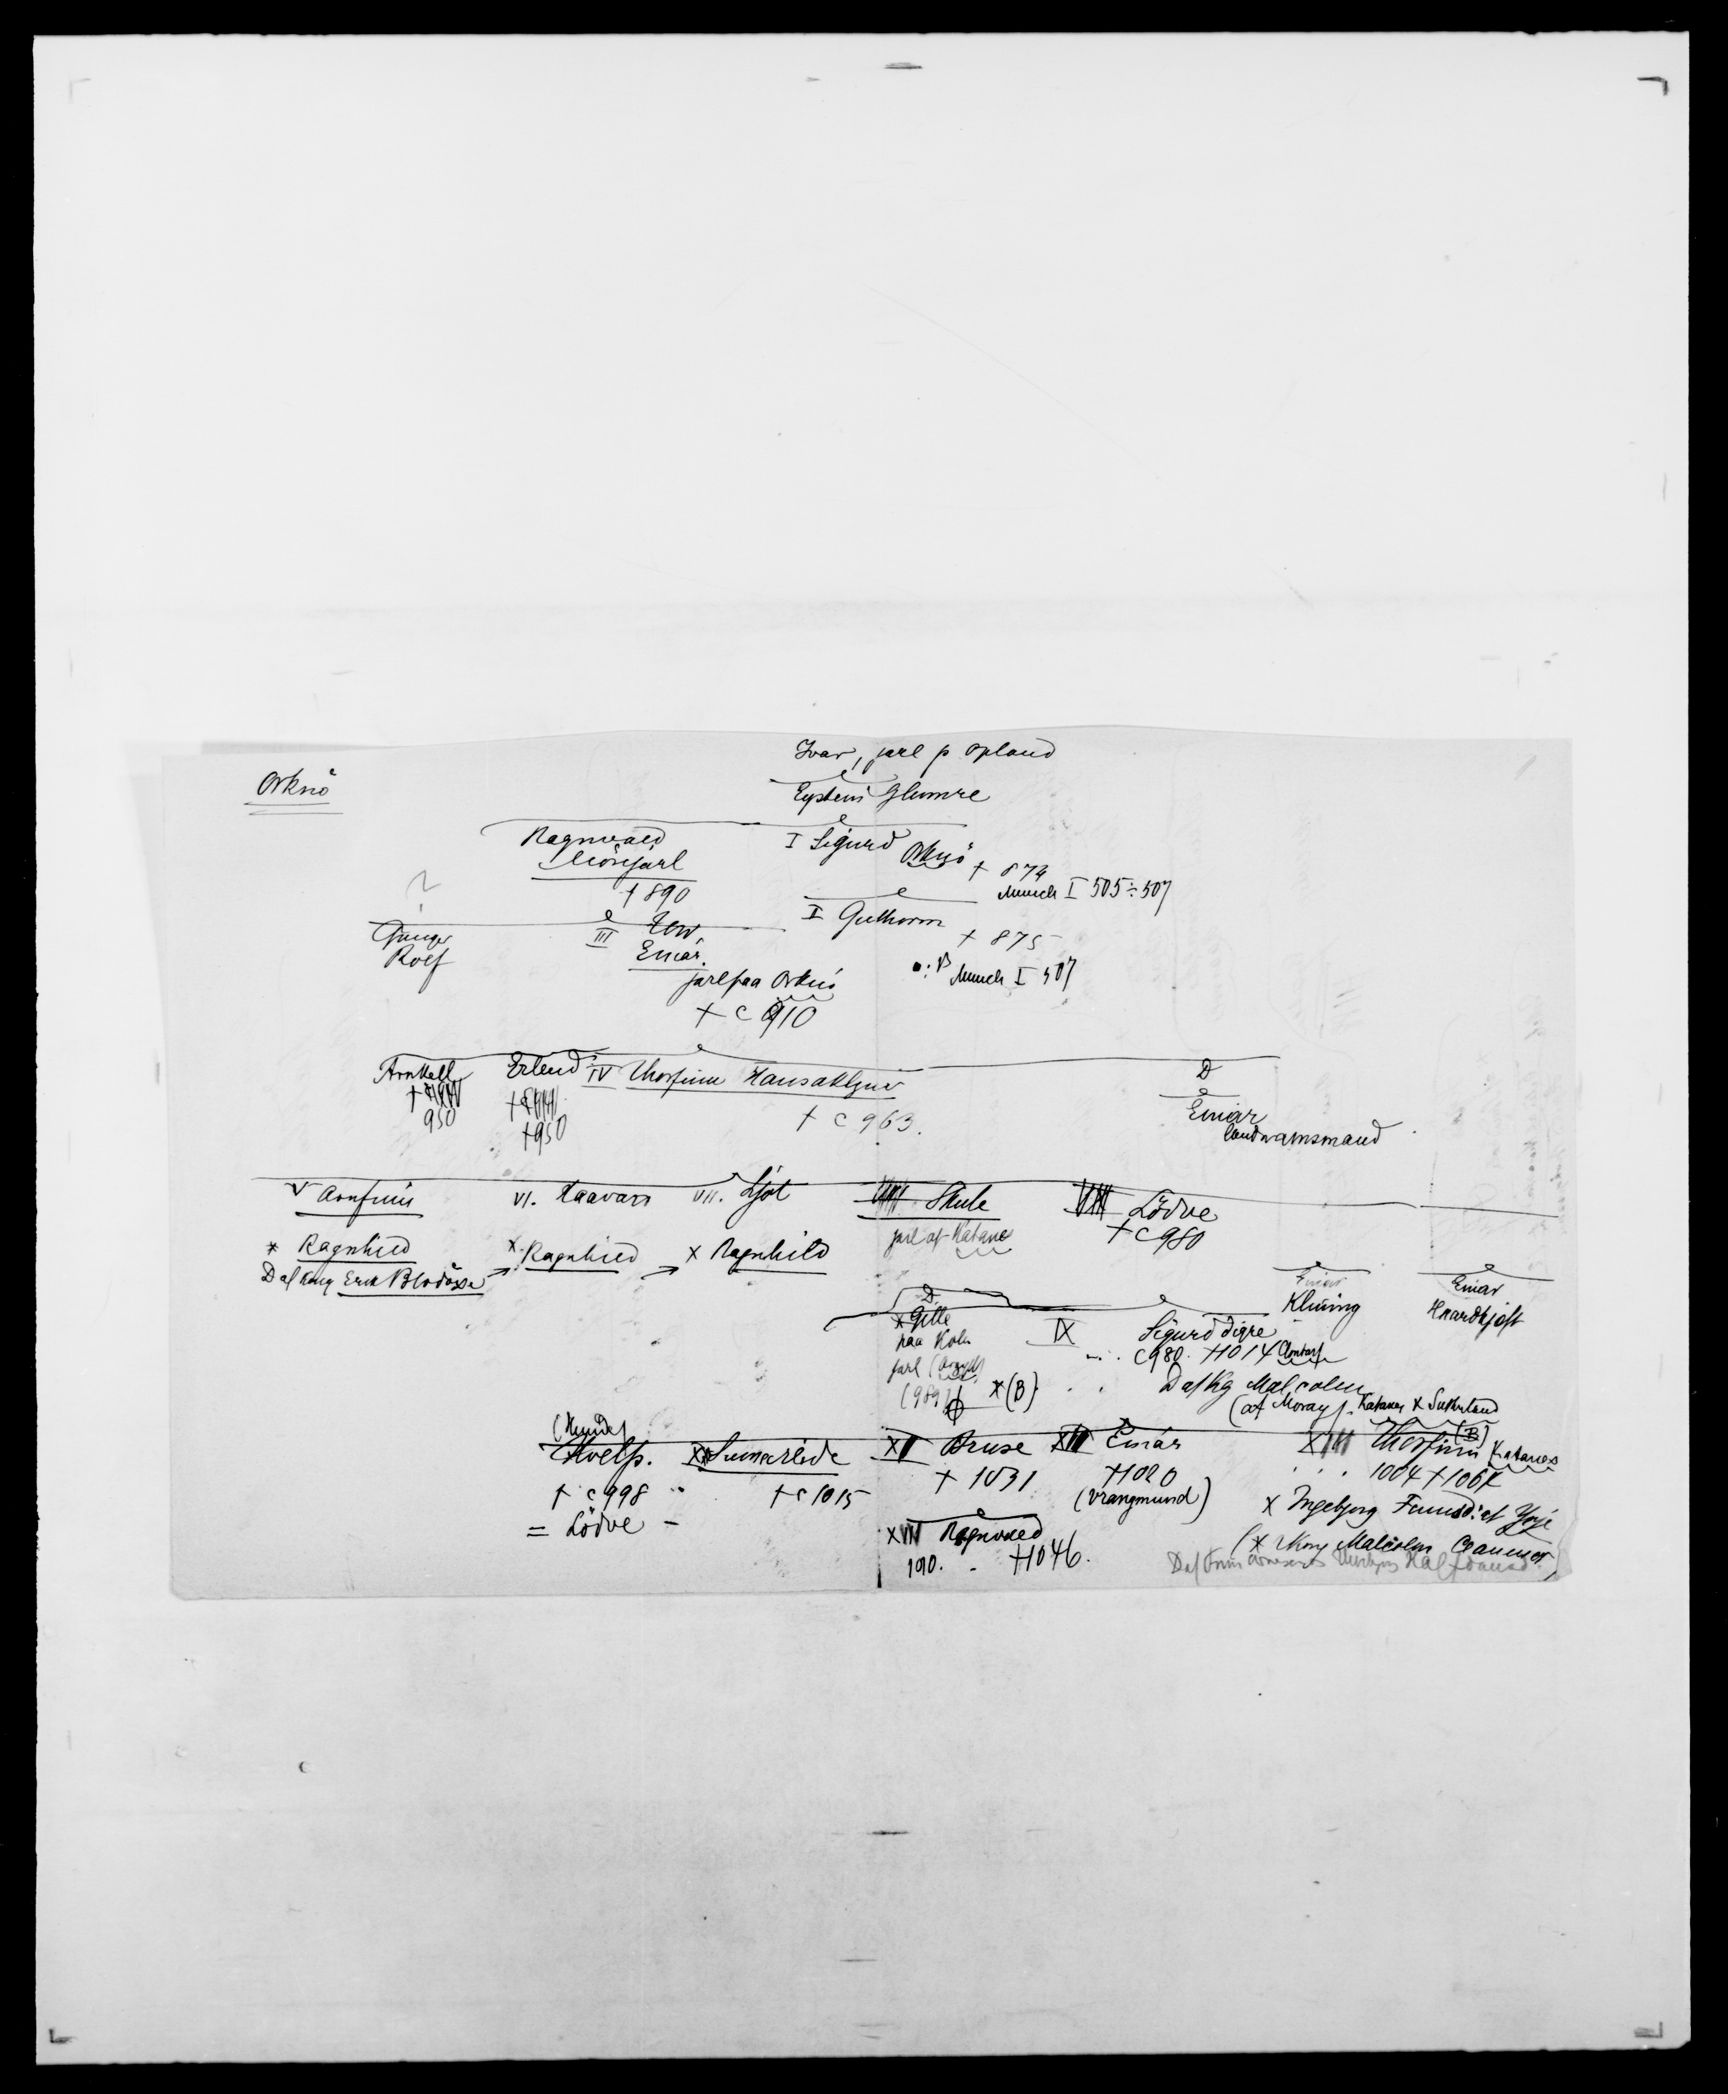 Orknö
Ivar, jarl p Opland
Eystein Glumre
Ragnvald
Mörejarl
† 890
I Sigurd Orknö † 874
Munch I 505÷507
?
Gange
Rolf
III Torv
Einar.
jarl paa Orknö
† c 910
I Guthorm
† 875
Munch I 507
Arnkell
†
950
Erlend
†
†950
IV Thorfinn Hausakljuv
† c 963.
D
Einar
landvarnsmand
V Arnfinn
VI. Haavard
VII. Ljot
Skule
jarl af Katanes
VIII Lödve
† c 980
× Ragnhild
D af Kong Erik Blodöxe →
× Ragnhild →
× Ragnhild
Einar
Klining
Einar
Haardkjøft
D
× Gille
paa Koln
jarl
(989)
× (B)
IX Sigurd Digre
c 980. †1014 Clontarf
D af Kg Malcolm
(af Moray) Katanes × Sutherland
(Hunde)
Hvelp.
† c 998
= Lödve –
Sumarlide
† c 1015
XI Bruse
† 1031
XII Einar
†1020
(Vrangmund)
XIII Thorfinn (B) Katanes
1004 †106
× Ingebjorg Finnsd: af Yrje
(× Kong Malcolm Canmor)
Ragnvald
1010. - †1046.
D af Finn Arnesen Halfdansd.